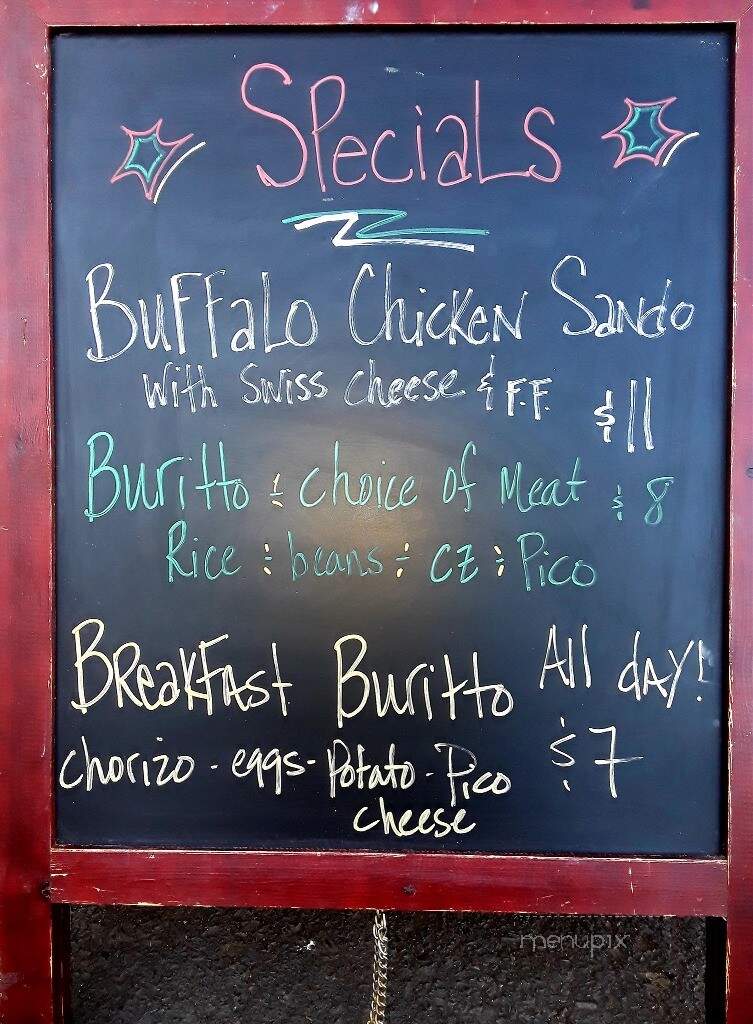 Specials
Buffalo Chicken Sando
with Swiss cheese & F.F. $11
Buritto ÷ choice of Meat $8
Rice ÷ beans ÷ CZ : Pico
Breakfast Buritto All day!
chorizo - eggs - Potato - Pico $7
cheese
menupix